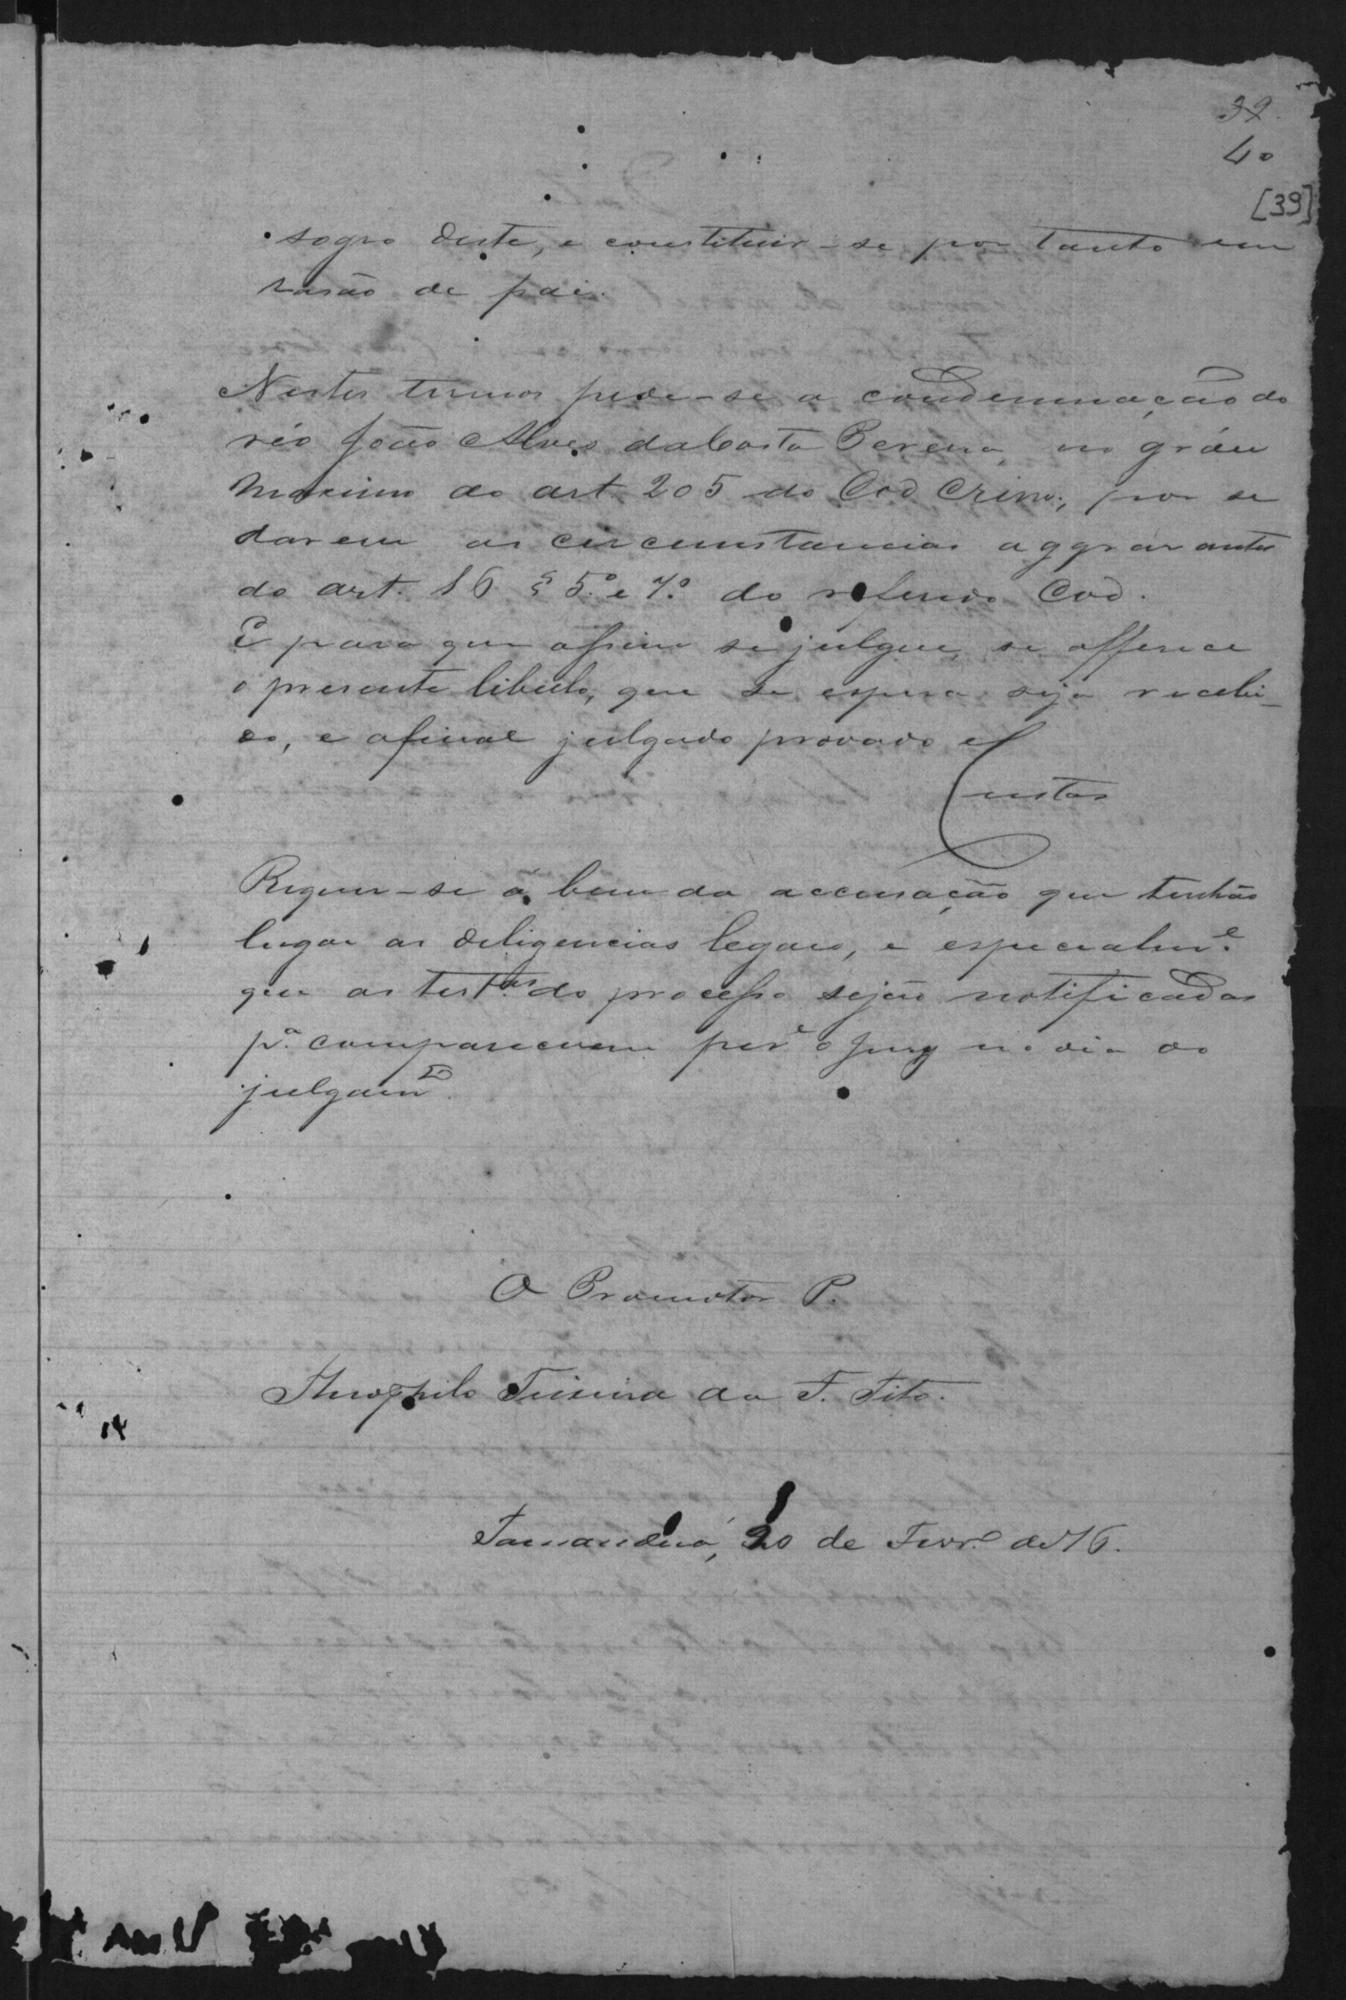 39.
40
[39]
sogro deste, e constituir-se por tanto em
rasão de pai.
Nestes termos pede-se a condemnação do
réo João Alves da Costa Pereira, no gráu
maximo do art. 205 do Cod Crim., por se
darem as circumstancias aggravantes
do art. 16 § 5.º e 7.º do referido Cod.
E para que assim se julgue, se offerece
o presente libello, que se espera seja recebi-
do, e afinal julgado provado e
Custas
Requer-se a bem da accusação que tenhão
lugar as deligencias legaes, e especialm.e
que as test.as do processo sejão notificadas
p.a comparecerem per.e o Jury no dia do
julgam.to
O Promotor P.
Theophilo Teixeira da F. Tito.
Tamanduá, 20 de Fevr.o de 76.